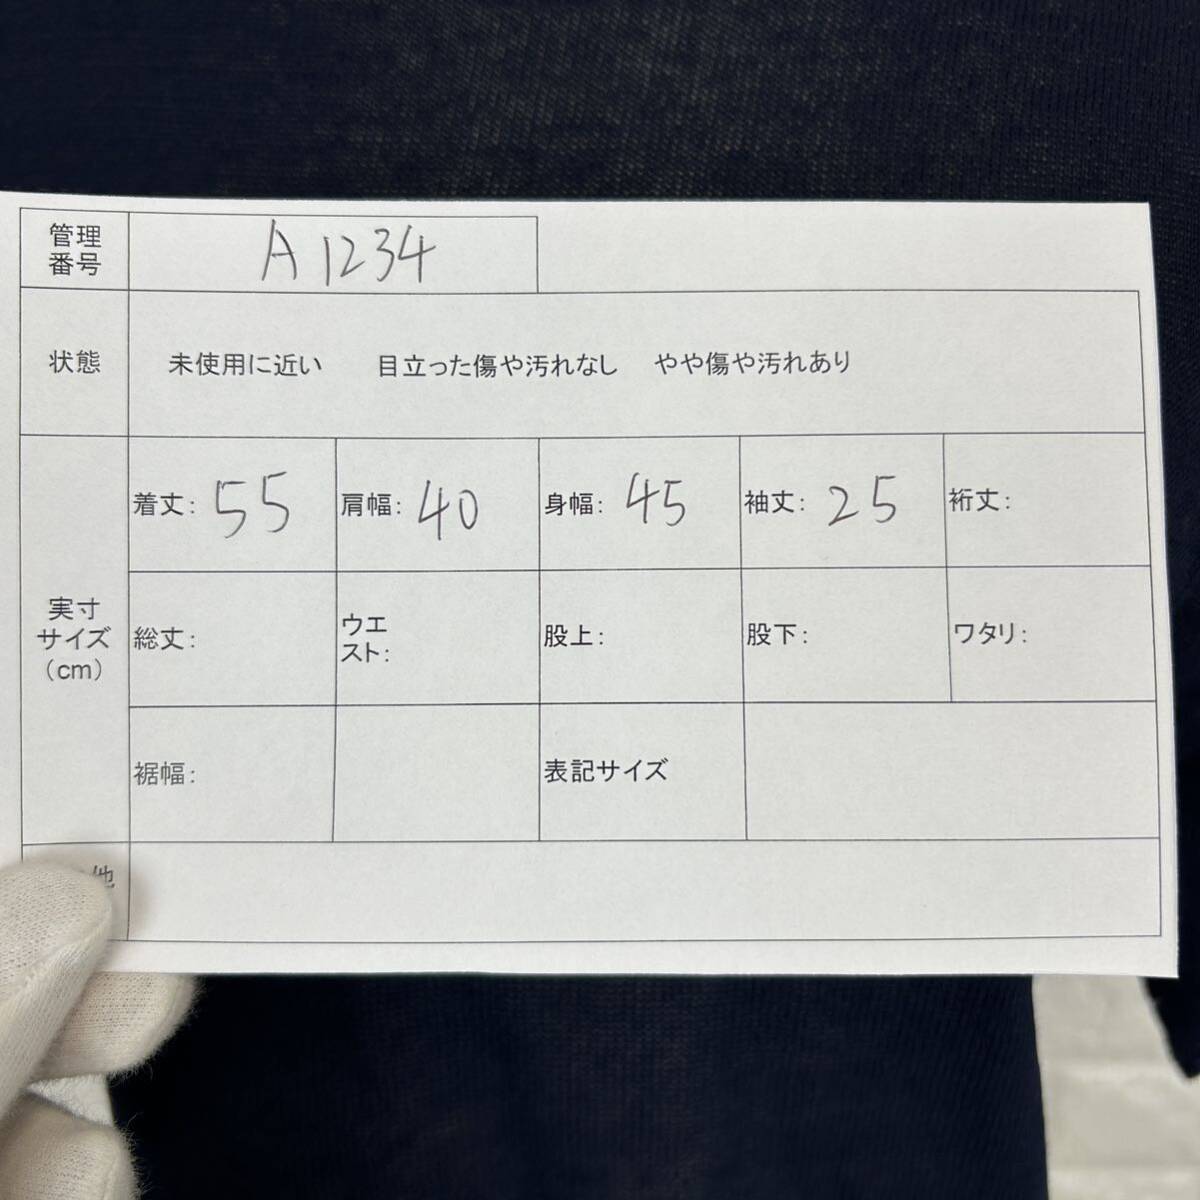 管理
番号
A1234
状態
未使用に近い 目立った傷や汚れなし やや傷や汚れあり
実寸
サイズ
(cm)
着丈: 55
肩幅: 40
身幅: 45
袖丈: 25
裄丈:
総丈:
ウエ
スト:
股上:
股下:
ワタリ:
裾幅:
表記サイズ
他